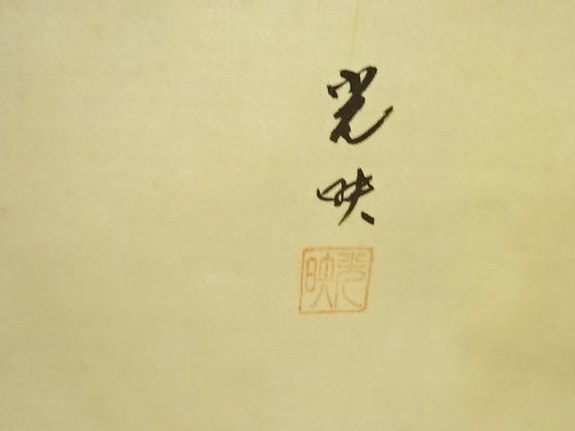 光映
光映